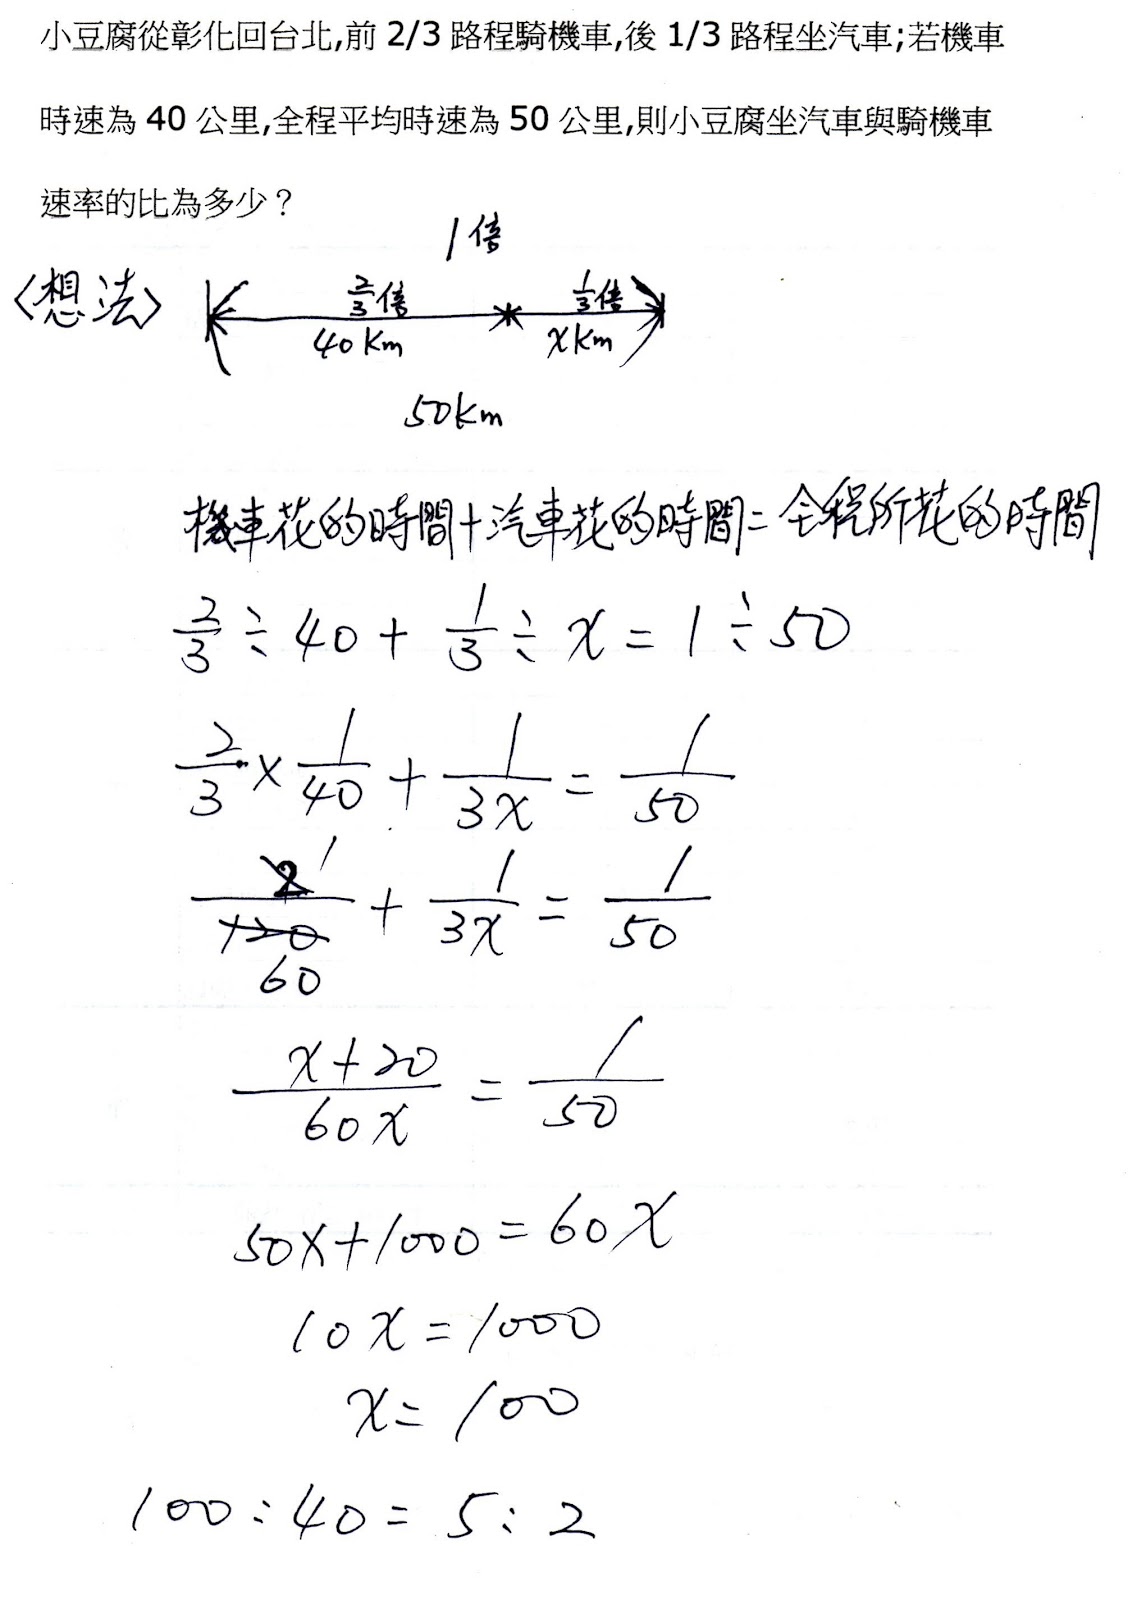 小豆腐從彰化回台北,前 2/3 路程騎機車,後 1/3 路程坐汽車;若機車
時速為 40 公里,全程平均時速為 50 公里,則小豆腐坐汽車與騎機車
速率的比為多少？
1倍
<想法>
2/3倍 1/3倍
40 Km xKm
50Km
機車花的時間+汽車花的時間=全程所花的時間
2/3 ÷ 40 + 1/3 ÷ x = 1 ÷ 50
2/3 × 1/40 + 1/3x = 1/50
2/120 + 1/3x = 1/50
1
60
x+20/60x = 1/50
50x+1000=60x
10x=1000
x=100
100:40=5:2